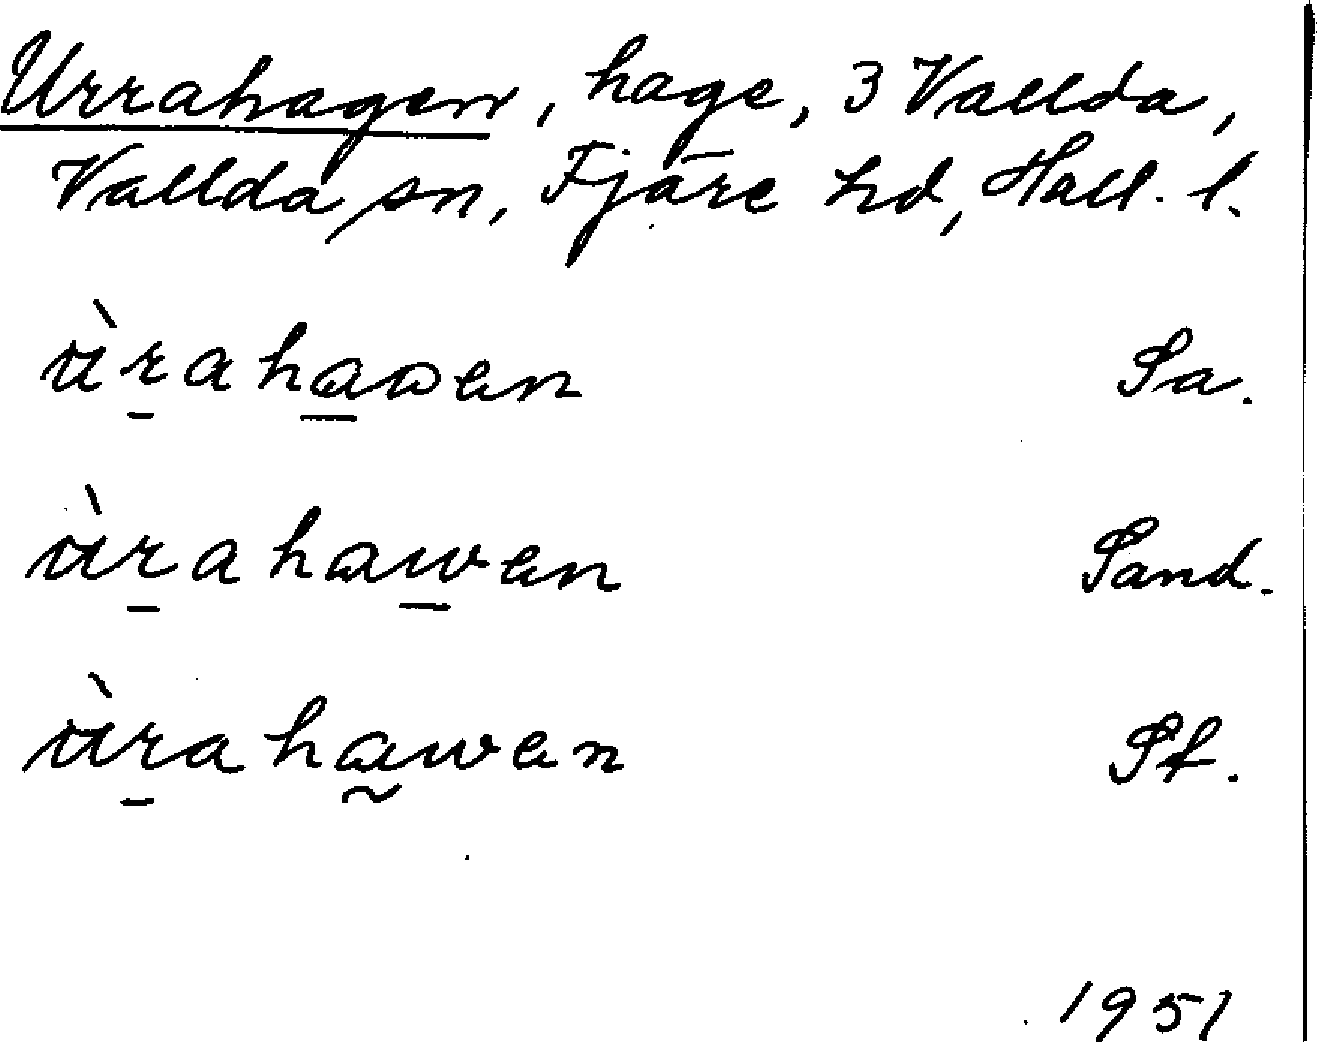 Urrahagen, hage, 3 Vallda,
Vallda sn, Fjäre hd, Hall. l.
ùrahawan Sa.
ùrahawan Sand.
ùrahawan Sf.
1951